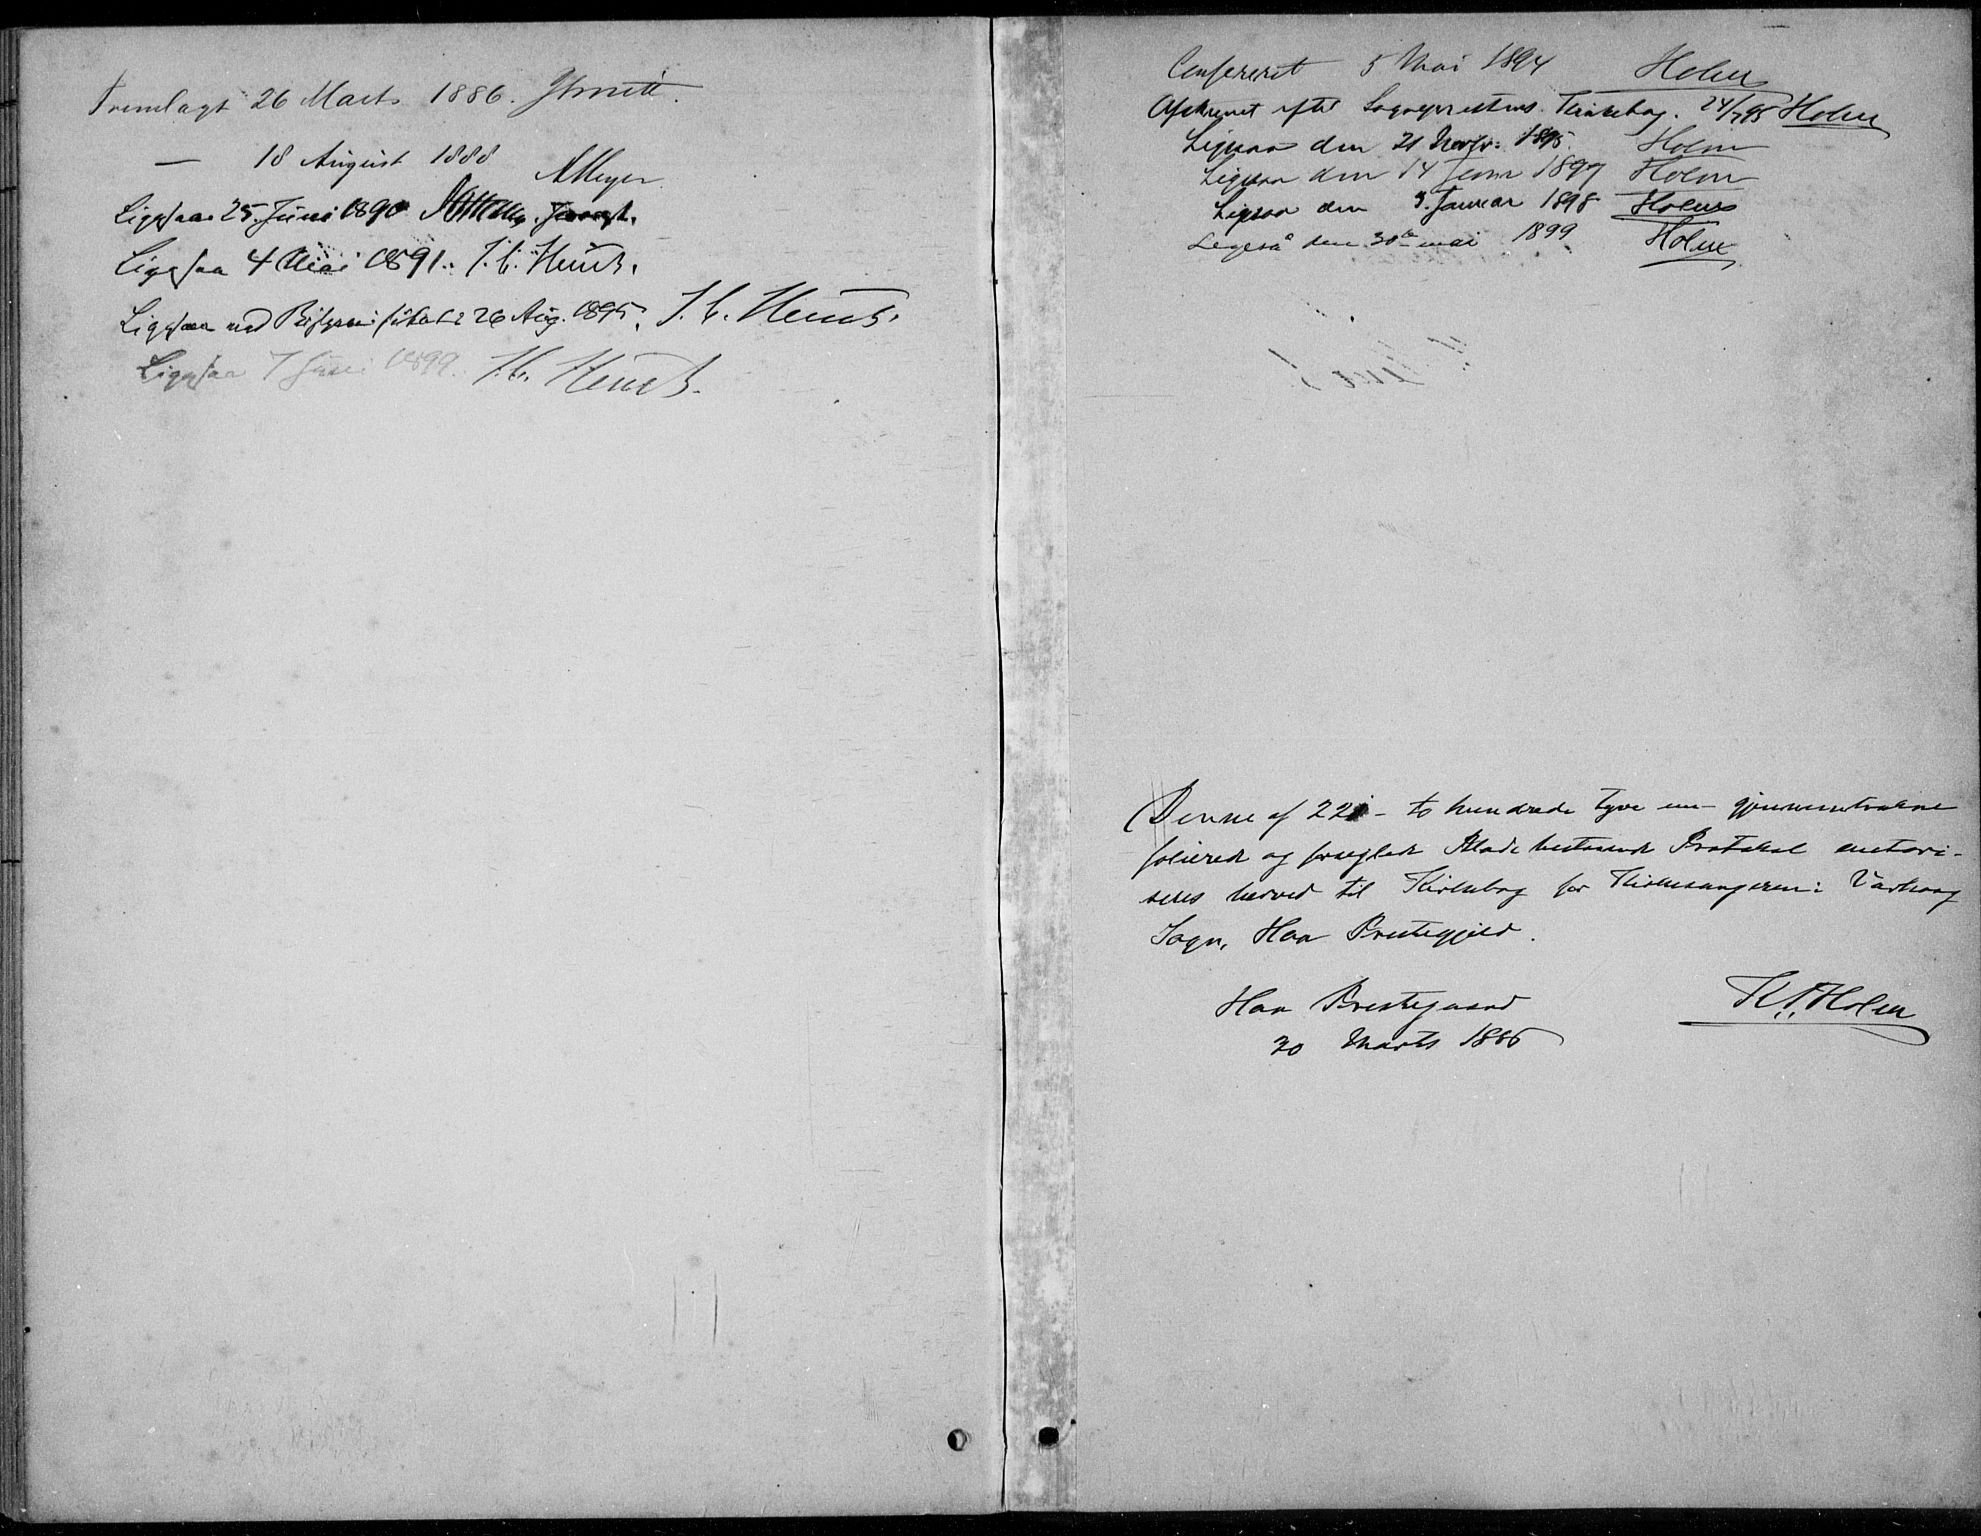 Fremlagt 26 Marts 1886.
— 18 August 1888 AMeyer
Ligesaa 25. Juni 1890
Ligesaa 4 Mai 1891. J. C. Heuch.
Ligesaa ved 26 Aug. 1895. J. C. Heuch.
Ligesaa 7 Juni 1899. J. C. Heuch.
Confereret 5 Mai 1894 Holm
Afskrevet efter Sogneprestens Kirkebog. 24/7 95 Holm
Ligesaa den 21 Novbr. 1895. Holm
Ligesaa den 14 Janr 1897 Holm
Ligesaa den 3. Januar 1898 Holm
Ligeså den 30te mai 1899 Holm
Denne af 221 – to hundrede tyve en – gjennemtrukne
folierede og forseglede Blade bestaaende Protokol autori-
seres herved til Kirkebog for Kirkesangeren i Varhaug
Sogn, Haa Prestegjeld.
Haa Prestegaard
30 Marts 1886
K. P. Holm